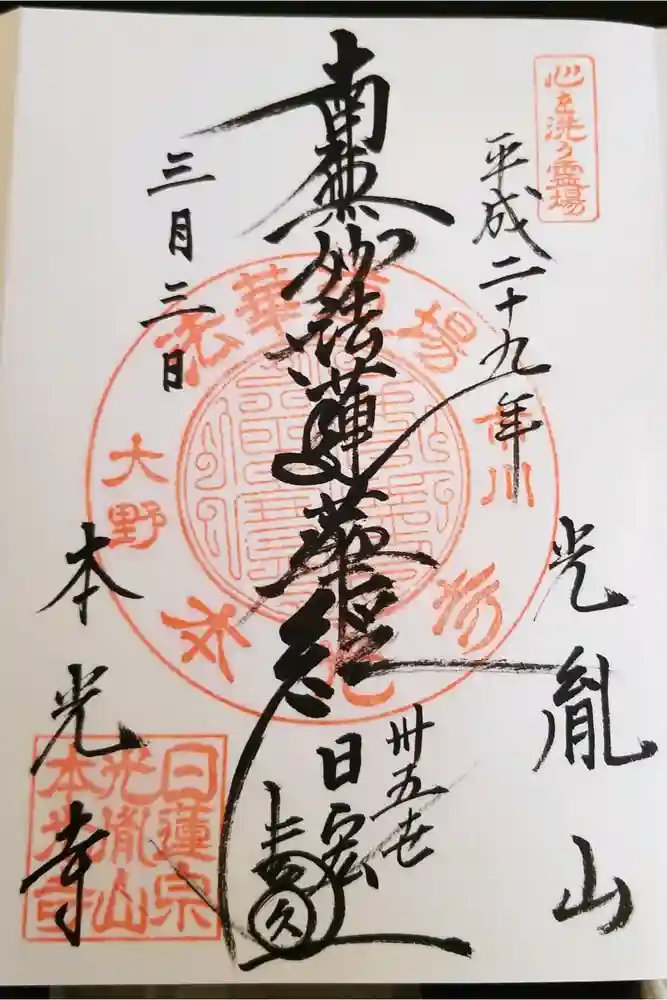 心を洗う霊場
平成二十九年
光胤山
南無妙法蓮華経
卅五世
日宏
三月三日
本光寺
法華道場
市川
大野
日蓮宗
光胤山
本光寺